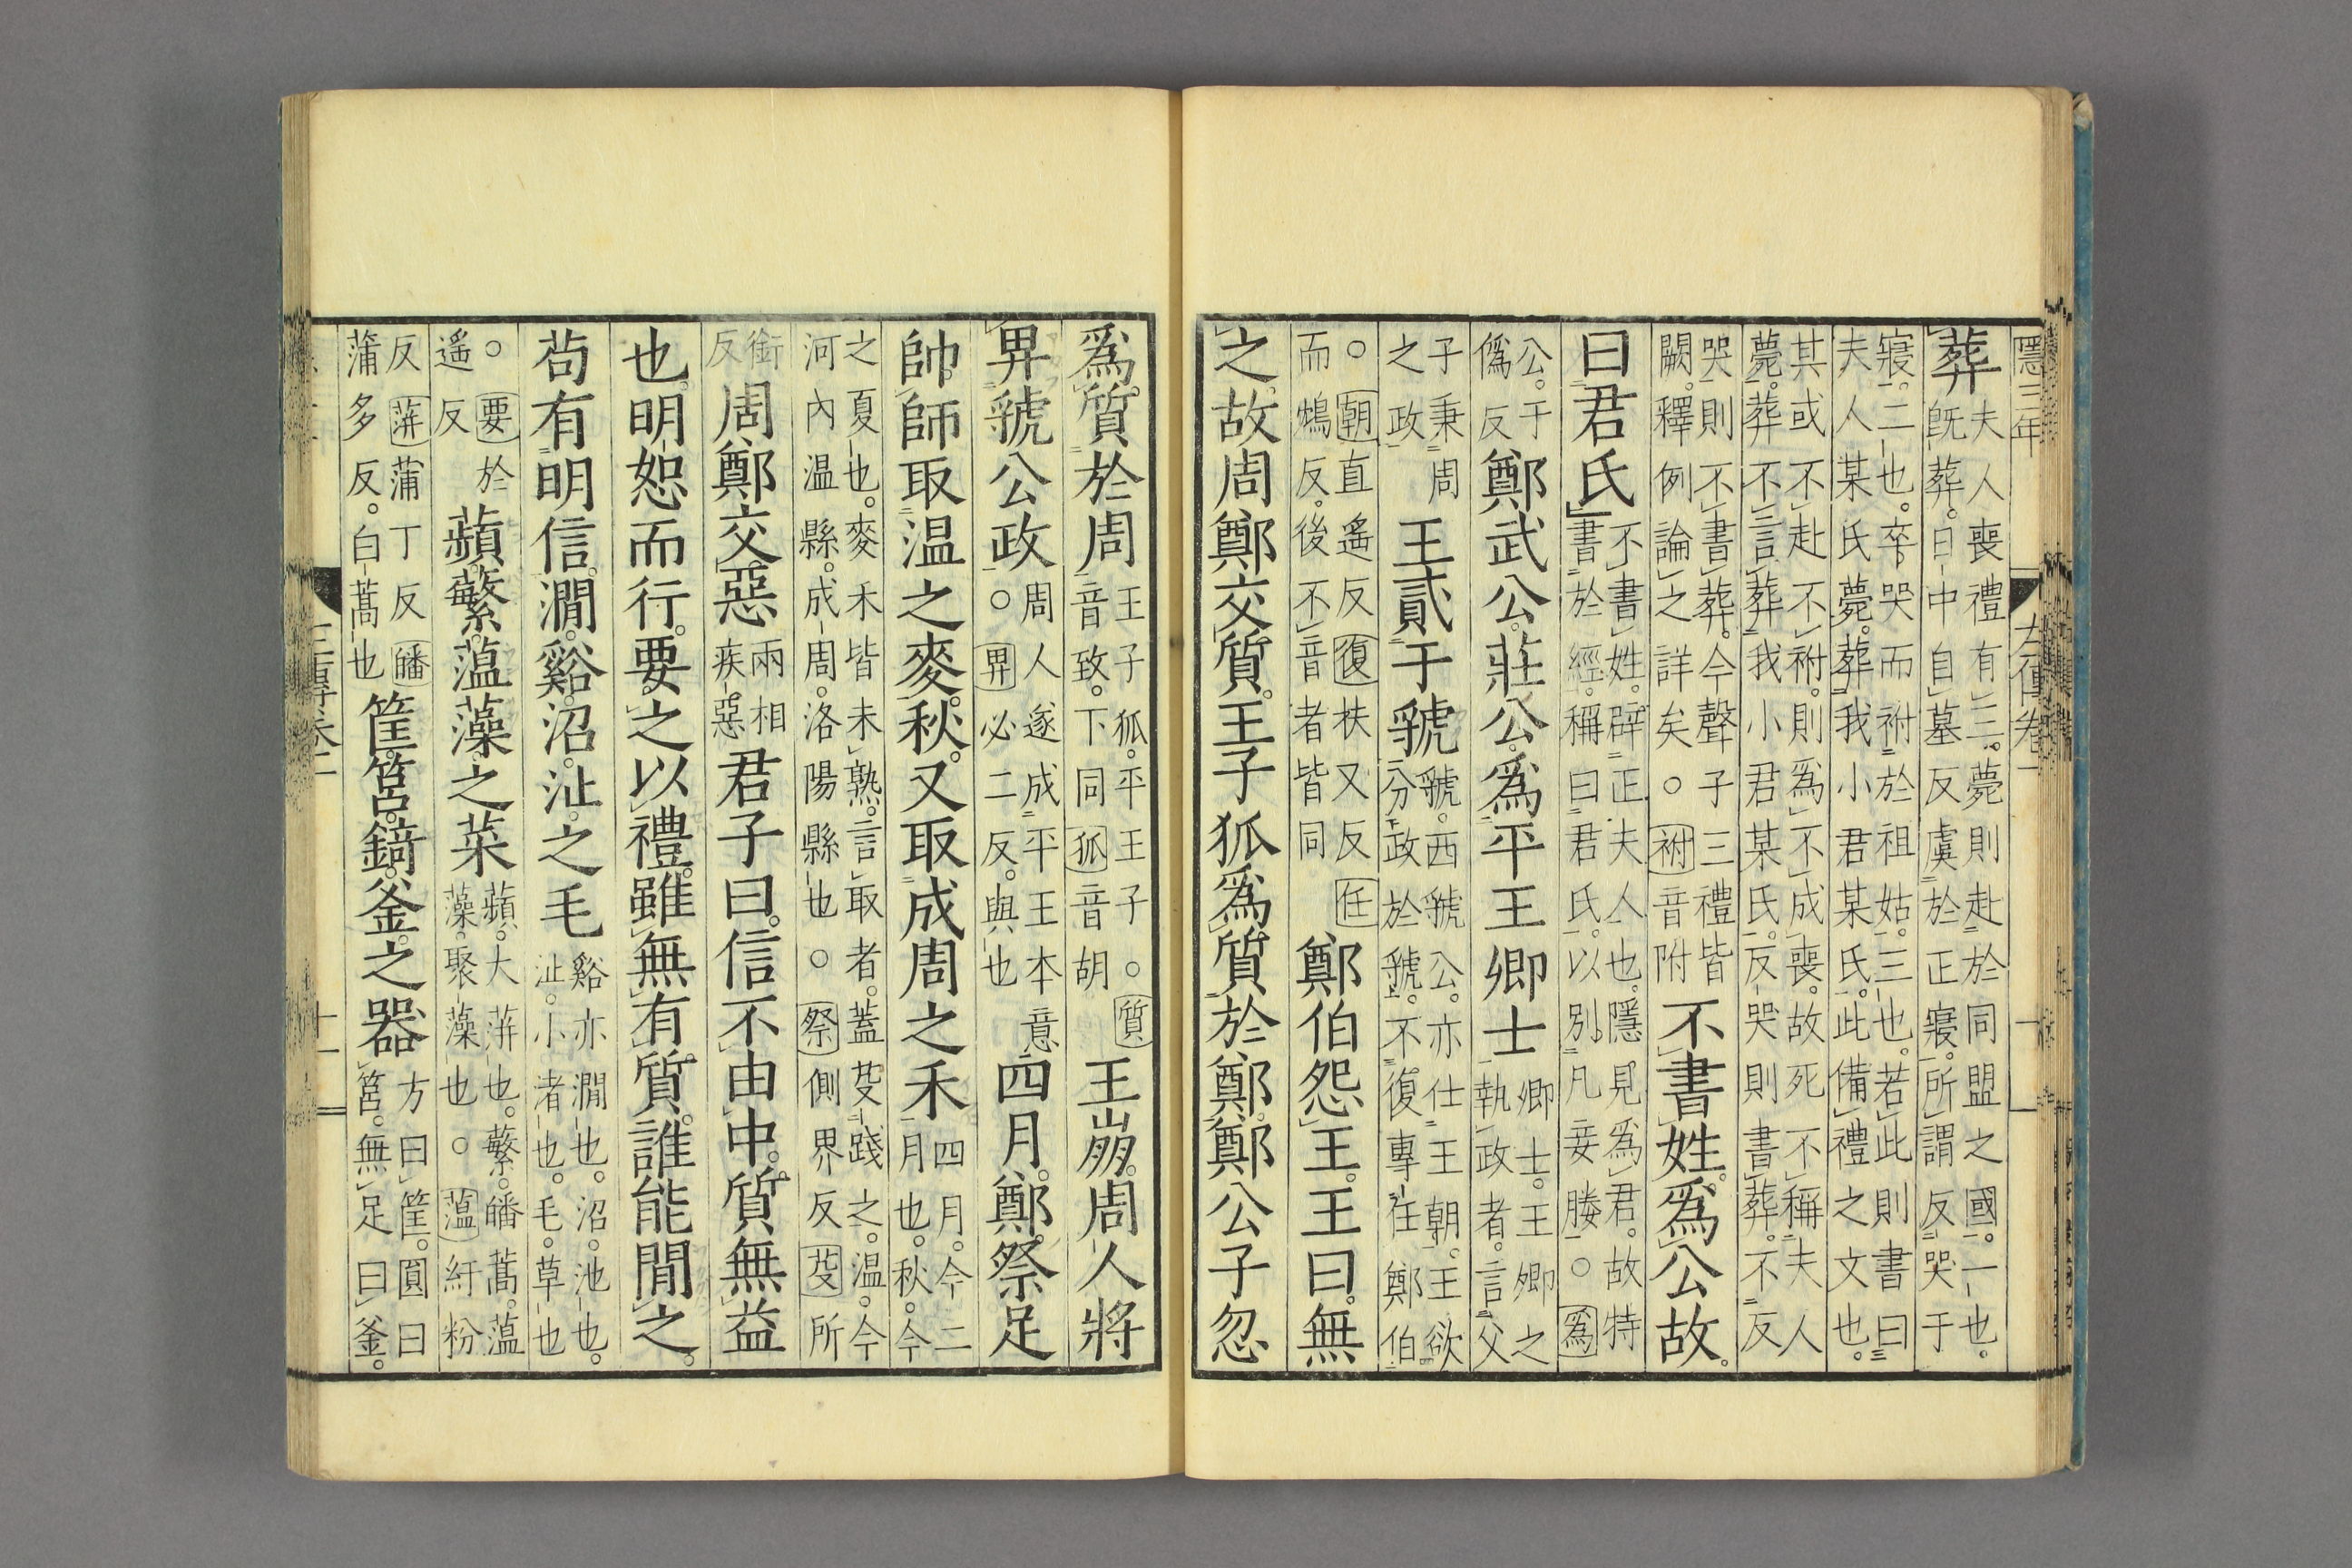 隱三年　左傳卷一
葬夫人喪禮有三。薨則赴於同盟之國。一也。既葬。日中自墓反虞於正寢。所謂反哭于
寢。二也。卒哭而祔於祖姑。三也。若此則書曰夫人某氏薨。葬我小君某氏。此備禮之文也。
其或不赴不祔。則爲不成喪。故死不稱夫人薨。葬不言葬我小君某氏。反哭則書葬。不反
哭則不書葬。今聲子三禮皆闕。釋例論之詳矣○祔音附不書姓。爲公故。
曰君氏不書姓。辟正夫人也。隱見爲君。故特書於經。稱曰君氏。以別凡妾媵○爲
公。于僞反鄭武公。莊公。爲平王卿士卿士。王卿之執政者。言父
子秉周之政王貳于虢虢。西虢公。亦仕王朝。王欲分政於虢。不復專任鄭伯
○朝直遙反復扶又反任而鴆反。後不音者皆同鄭伯怨王。王曰。無
之。故周鄭交質。王子狐爲質於鄭。鄭公子忽
爲質於周王子狐。平王子○質音致。下同狐音胡王崩。周人將
畀虢公政周人遂成平王本意○畀必二反。與也四月。鄭祭足
帥師取温之麥。秋。又取成周之禾四月。今二月也。秋。今
之夏也。麥禾皆未熟。言取者。蓋芟踐之。温。今河內温縣。成周。洛陽縣也○祭側界反芟所
銜反周鄭交惡兩相疾惡君子曰。信不由中。質無益
也。明恕而行。要之以禮。雖無有質。誰能間之。
苟有明信。澗。谿。沼。沚。之毛谿亦澗也。沼。池也。沚。小渚也。毛。草也
○要於遙反蘋。蘩。薀藻。之菜蘋。大蓱也。蘩。皤蒿。薀藻。聚藻也○薀紆粉
反蓱蒲丁反皤蒲多反。白蒿也筐。筥。錡。釜。之器方曰筐。圓曰筥。無足曰釜。